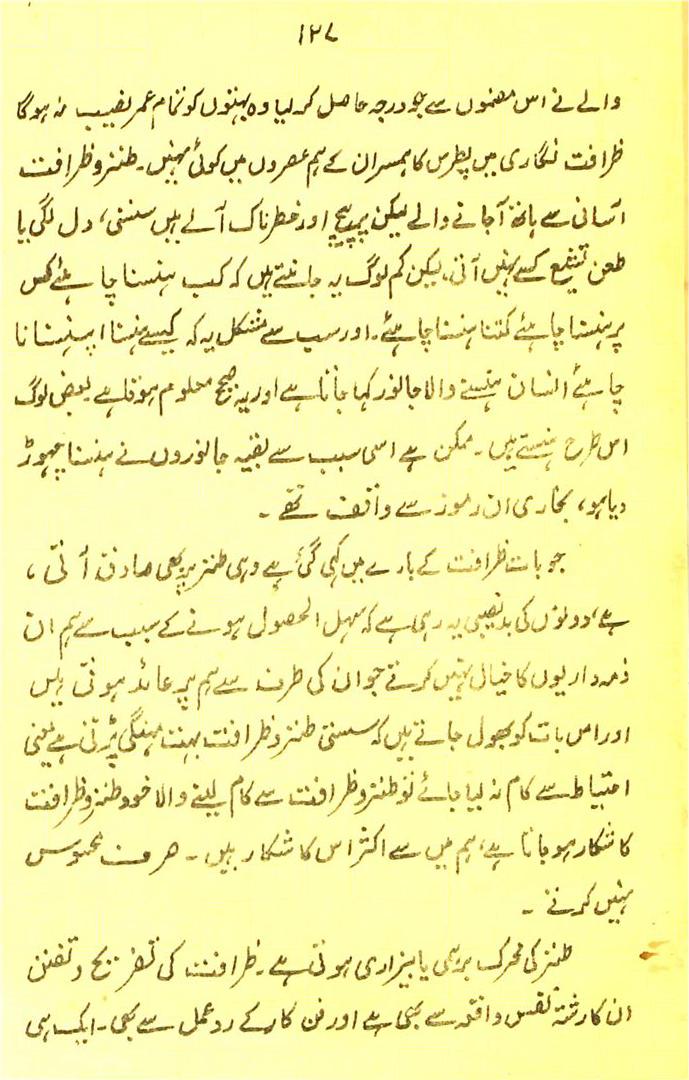 ۱۲۷
والے نے اس مضموں سے جو درجہ حاصل کر لیا وہ بہتوں کو تمام عمر نصیب نہ ہوگا
ظرافت نگاری میں پطرس کا ہمسر ان کے ہم عصروں میں کوئی نہیں۔ طنز و ظرافت
آسانی سے ہاتھ آجانے والے لیکن پر پیچ اور خطرناک آلے ہیں سنسنی، دل لگی یا
طعن تشنیع کسے نہیں آتی۔ لیکن کم لوگ یہ جانتے ہیں کہ کب ہنسنا چاہئے کس
پر ہنسنا چاہئے کتنا ہنسنا چاہئے۔ اور سب سے مشکل یہ کہ کیسے ہنسنا ہنسانا
چاہئے انسان ہنسنے والا جانور کہا جاتا ہے اور یہ صحیح معلوم ہوتا ہے بعض لوگ
اس طرح ہنستے ہیں۔ ممکن ہے اسی سبب سے بقیہ جانوروں نے ہنسنا چھوڑ
دیا ہو، بخاری ان رموز سے واقف تھے ۔
جو بات ظرافت کے بارے میں کہی گئی ہے وہی طنز پر بھی صادق آتی ،
ہے، دونوں کی بدنصیبی یہ رہی ہے کہ سہل الحصول ہونے کے سبب سے ہم ان
ذمہ داریوں کا خیال نہیں کرتے جو ان کی طرف سے ہم پر عائد ہوتی ہیں
اور اس بات کو بھول جاتے ہیں کہ سستی طنز و ظرافت بہت مہنگی پڑتی ہے یعنی
احتیاط سے کام نہ لیا جائے تو طنز و ظرافت سے کام لینے والا خود طنز و ظرافت
کا شکار ہو جاتا ہے، ہم میں سے اکثر اس کا شکار ہیں ۔ صرف محسوس
نہیں کرتے ۔
طنز کی محرک برہمی یا بیزاری ہوتی ہے ۔ ظرافت کی تفریح و تفنن
ان کا رشتہ نفس واقعہ سے بھی ہے اور فن کار کے رد عمل سے بھی ۔ ایک ہی